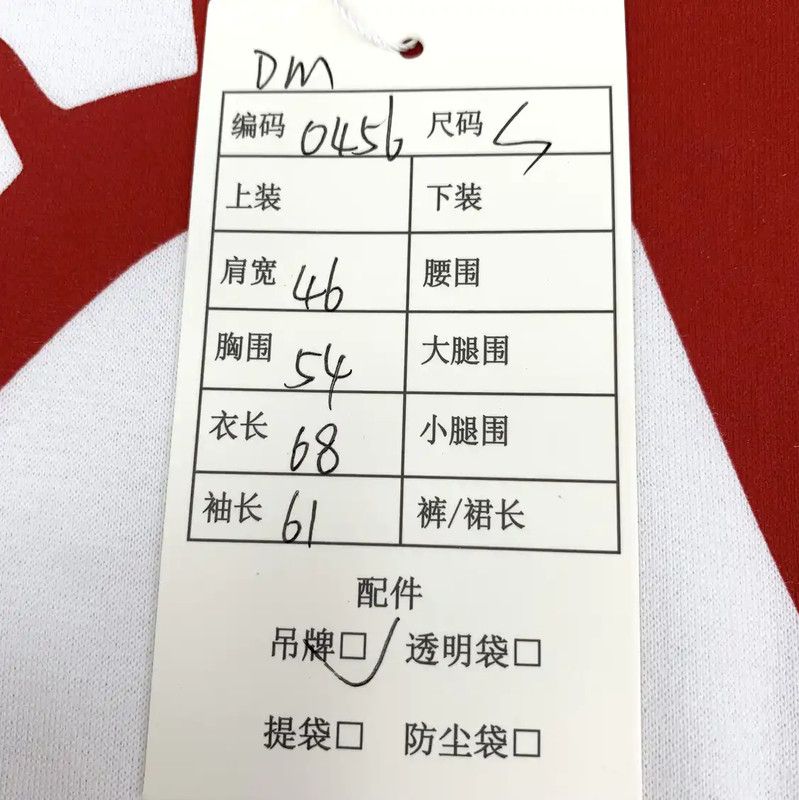 DM
编码 0456 尺码 S
上装 下装
肩宽 46 腰围
胸围 54 大腿围
衣长 68 小腿围
袖长 61 裤/裙长
配件
吊牌□ 透明袋□
提袋□ 防尘袋□